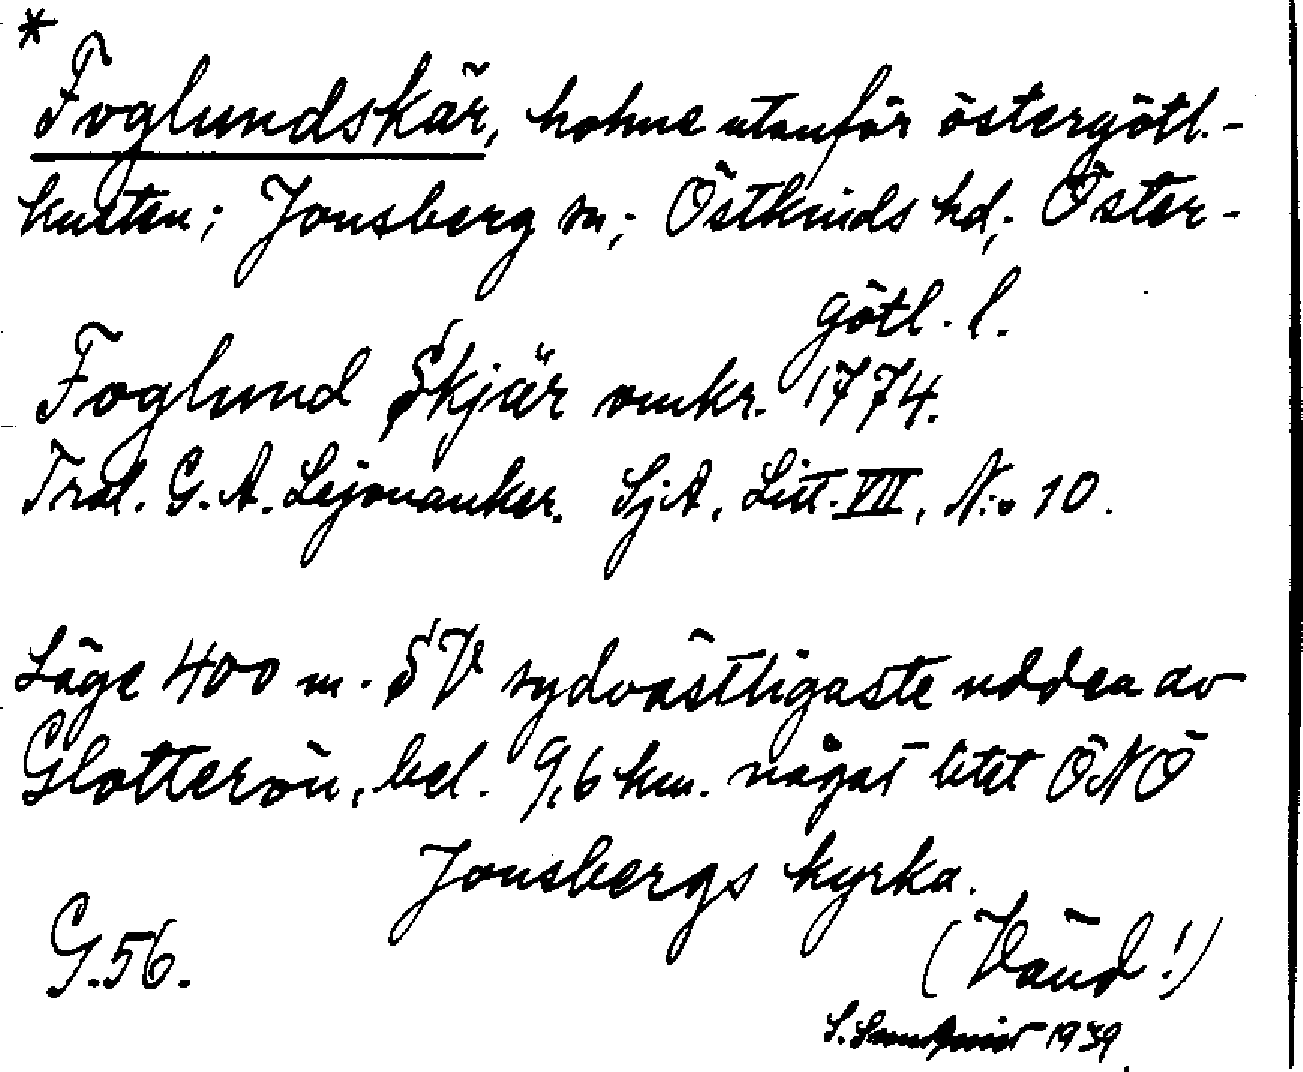 *
Foglundskär, holme utanför östergötl.-
kusten; Jonsberg sn; Östkinds hd; Öster-
götl. l.
Foglund Skjär omkr. 1774.
Trol. G. A. Lejonanker. SjA, Litt. VII, N:o 10.
Läge 400 m. SV sydvästligaste udden av
Glotterön, bel. 9,6 km. något litet ÖNÖ
Jonsbergs kyrka.
G.56.
(Vänd!)
S. 1939